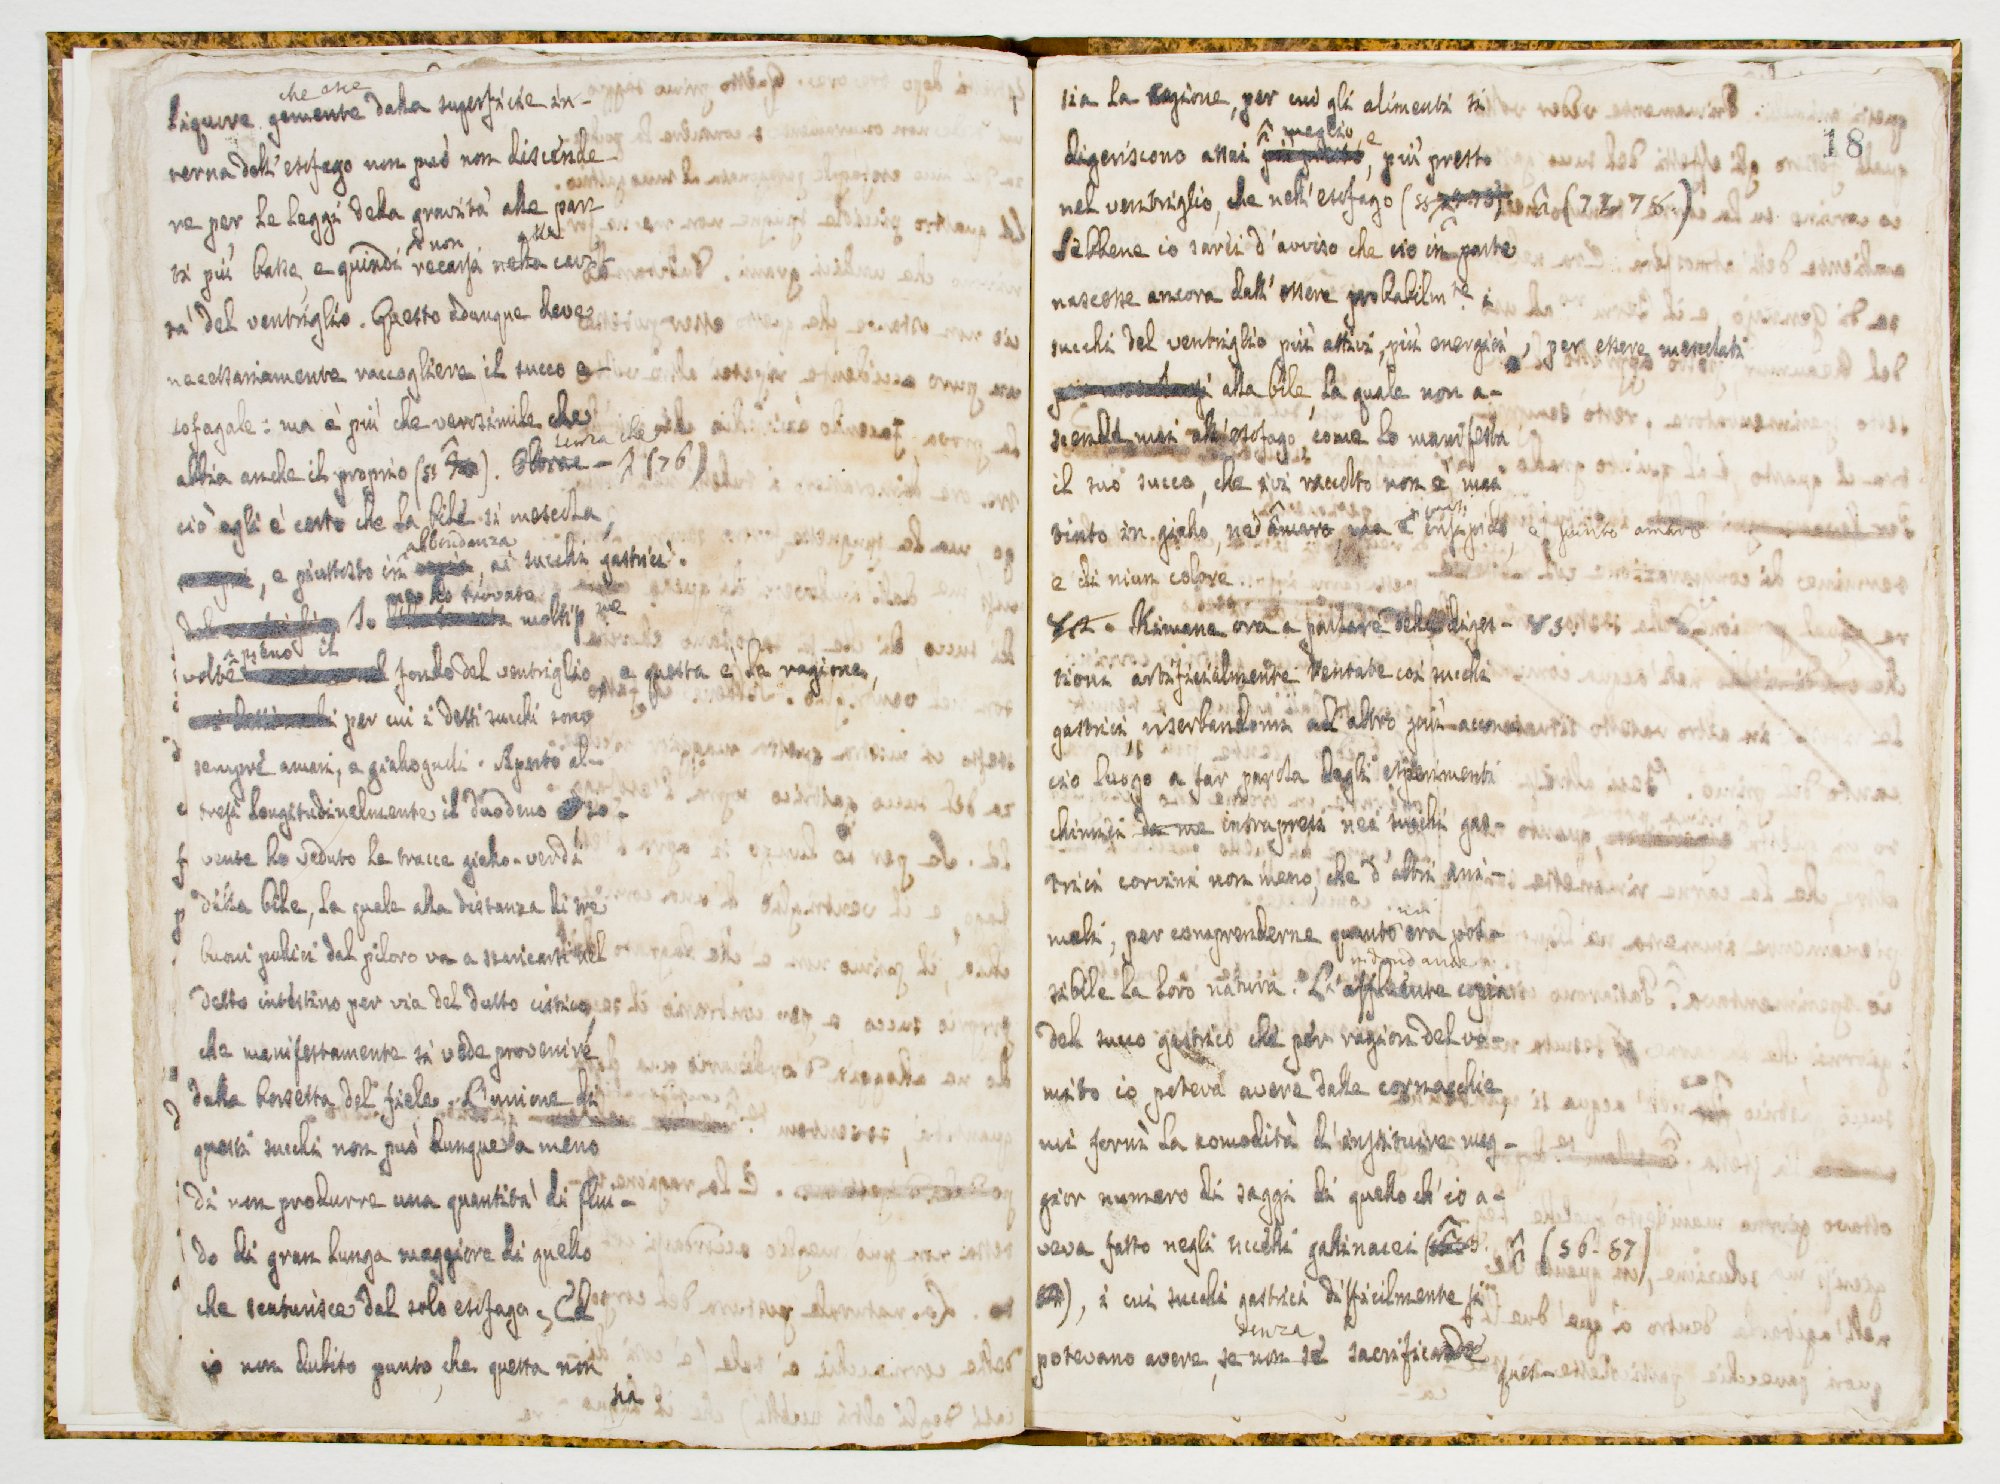 che esce
liquore gemente dalla superficie in-
terna dell'esofago non può non discende-
re per le leggi della gravità alle par-
ti più basse, e quindi non recarsi nella cavi-
tà del ventriglio. Questo adunque deve
necessariamente raccogliere il succo e-
sofagale: ma è più che verosimile che
abbia anche il proprio (76). senza che
ciò egli è certo che la bile si mescola,
abbondanza
, e piuttosto in ai succhi gastrici.
Io ne ho trovato moltis.me
volte pieno il fondo del ventriglio, e questa è la ragione,
per cui i detti succhi sono
sempre amari, e giallognoli. Aperto al-
tresì longitudinalmente il duodeno so-
vente ho veduto le tracce giallo-verdi
della bile, la quale alla distanza di tre
buoni pollici dal piloro va a scaricarsi nel
detto intestino per via del dutto cistico,
che manifestamente si vede provenire
dalla borsetta del fiele. L'unione di
questi succhi non può dunque da meno
di non produrre una quantità di flui-
do di gran lunga maggiore di quello
che scaturisce dal solo esofago. Ed
io non dubito punto, che questa non
sia
18
sia la cagione, per cui gli alimenti si
digeriscono assai meglio e, più presto
nel ventriglio, che nell'esofago (77-78)
Sebbene io sarei d'avviso che ciò in parte
nascesse ancora dall'essere probabilm.te i
succhi del ventriglio più attivi, più energici, per essere mescolati
alla bile, la quale non a-
scende mai all'esofago, come lo manifesta
il suo succo, che ivi raccolto non è mai
tinto in giallo, nè amaro, ma è insipido, e punto amaro
e di niun colore.
Rimane ora a parlare delle diges- 83.
tioni artifizialmente tentate coi succhi
gastrici, riserbandomi ad altro più accon-
cio luogo a far parola degli esperimenti
chimici da me intrapresi nei succhi gas-
trici corvini non meno, che d'altri ani-
mali, per comprenderne quanto mi era pos-
sibile la loro natura. L'affluente copia
ridondanza
del succo gastrico che per ragion del vo-
mito io poteva avere dalle cornacchie,
mi fornì la comodità d'instituire mag-
gior numero di saggi di quello ch'io a-
veva fatto negli uccelli gallinacei (56-57)
, i cui succhi gastrici difficilmente si
senza
potevano avere, se non se sacrificando
ques-